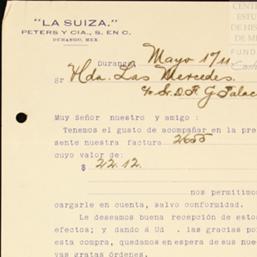 "LA SUIZA."
PETERS Y CIA., S. EN C.
DURANGO, MEX
CENT
ESTUD
DE HIS
DE M
FUND
Durango, Mayo 17/11
Sr Hda. Las Mercedes.
c/o Sr. D. F. G Palac
Muy Señor nuestro y amigo :
Tenemos el gusto de acompañar en la pre
sente nuestra factura 2655
cuyo valor de:
$ 22.12.
nos permitimos
cargarle en cuenta, salvo conformidad.
Le deseamos buena recepción de estos
efectos; y dando á Ud . las gracias po
esta compra, quedamos en espera de sus nue
vas gratas órdenes.